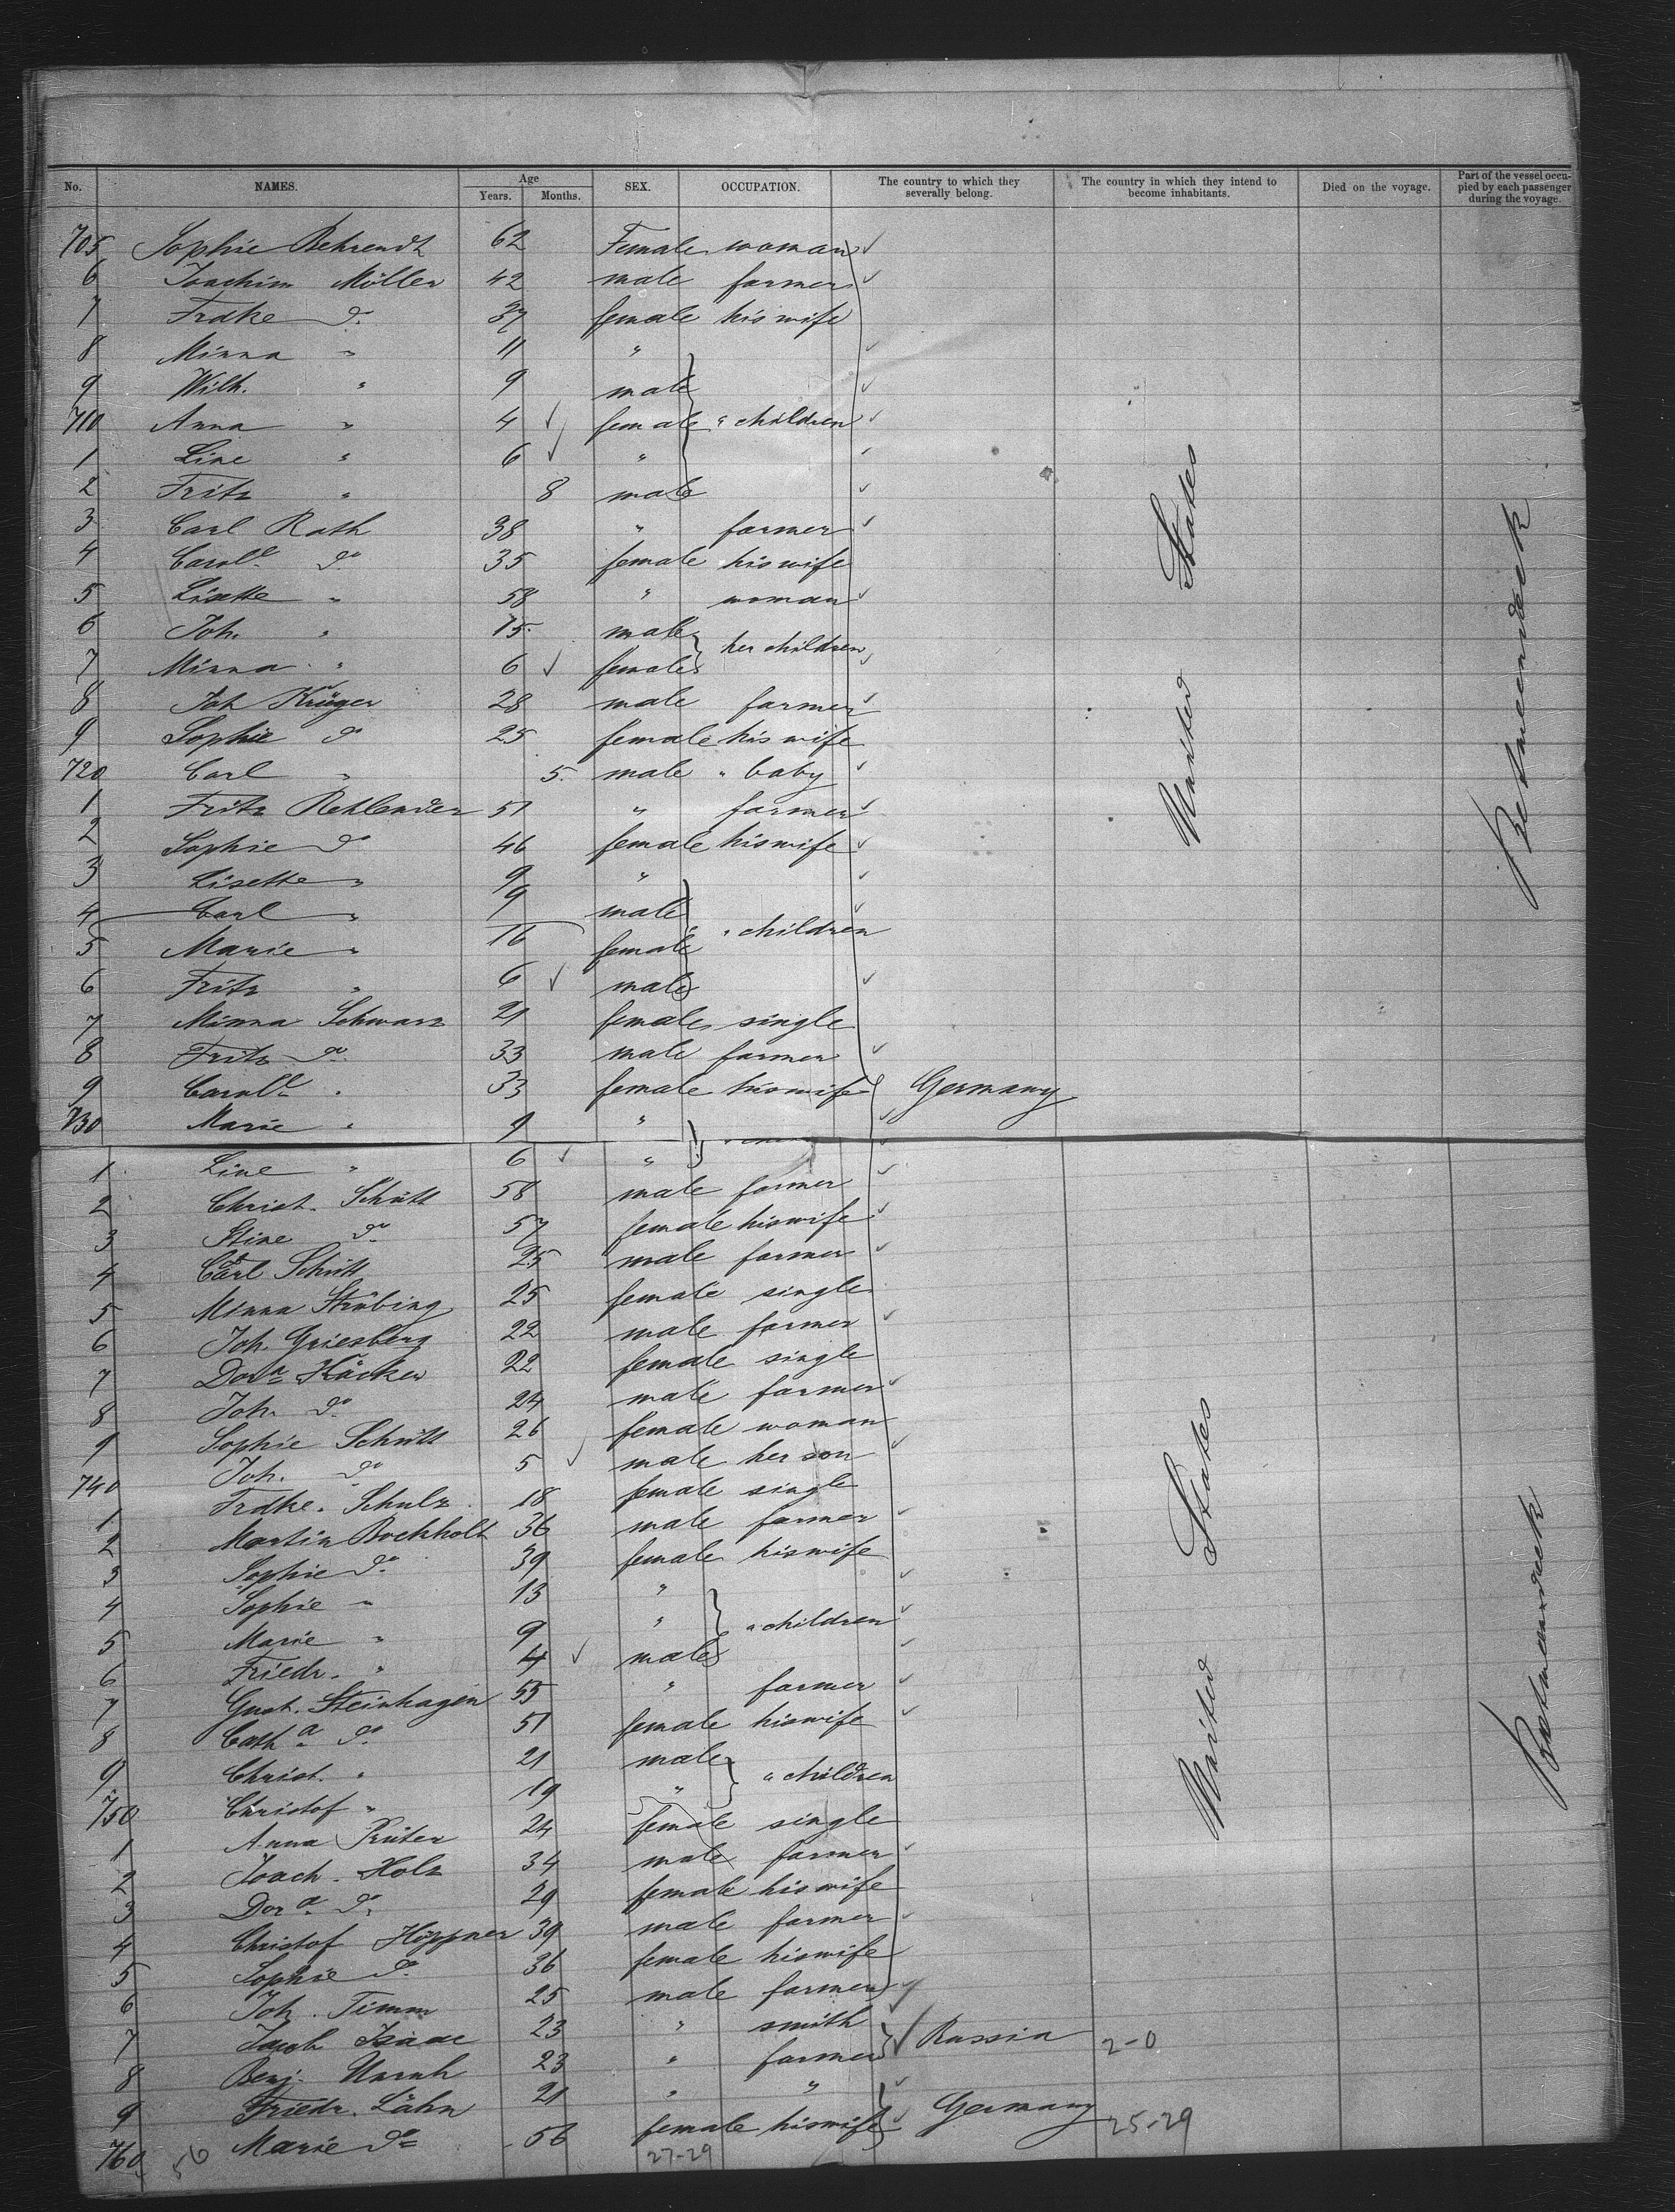 No. NAMES. Age Years. Months. SEX. OCCUPATION. The country to which they severally belong. The country in which they intend to become inhabitants. Died on the voyage. Part of the vessel occupied by each passenger during the voyage.
705 Sophie Behrendt 62 Female woman
6 Joachim Möller 42 male farmer
7 Frdke do. 37 female his wife
8 Minna " 11 "
9 Wilh. " 9 male
710 Anna " 4 female " children
1 Line " 6 "
2 Fritz " 8 male
3 Carl Rath 38 " farmer
4 Carol. do. 35 female his wife
5 Lisette " 58 " woman
6 Joh. " 15 male her children
7 Minna " 6 female
8 Joh Krüger 28 male farmer
9 Sophie do 25 female his wife
720 Carl " 5. male " baby
1 Fritz Rehlender 51 " farmer
2 Sophie do 46 female his wife
3 Lisette " 9 "
4 Carl " 9 male " children
5 Marie " 16 female
6 Fritz " 6 male
7 Minna Schwarz 21 female single
8 Fritz do. 33 male farmer
9 Carol. " 33 female his wife Germany
730 Marie " 9 "
1 Line " 6 "
2 Christ. Schütt 58 male farmer
3 Stine do. 57 female his wife
4 Carl Schütt 25 male farmer
5 Minna Strübing 25 female single
6 Joh. Griesberg 22 male farmer
7 Dora Häcker 22 female single
8 Joh. do 24 male farmer
9 Sophie Schütt 26 female woman
740 Joh. do 5 male her son
1 Frdke. Schulz 18 female single
2 Martin Bockholt 36 male farmer
3 Sophie do. 39 female his wife
4 Sophie " 13 "
5 Marie " 9 " " children
6 Friedr. " 4 male
7 Gust. Steinhagen 55 " farmer
8 Catha do. 51 female his wife
9 Christ. " 21 male " children
750 Christof " 19 "
1 Anna Krüter 24 female single
2 Joach. Holz 34 male farmer
3 Dora do. 29 female his wife
4 Christof Höppner 39 male farmer
5 Sophie do. 36 female his wife
6 Joh. Timm 25 male farmer
7 Jacob Isaac 23 " smith Russia 2-0
8 Benj. Unruh 23 " farmer
9 Friedr. Lähn 21 " " Germany
760 Marie do 56 female his wife 25-29
56 27-29
United States
United States